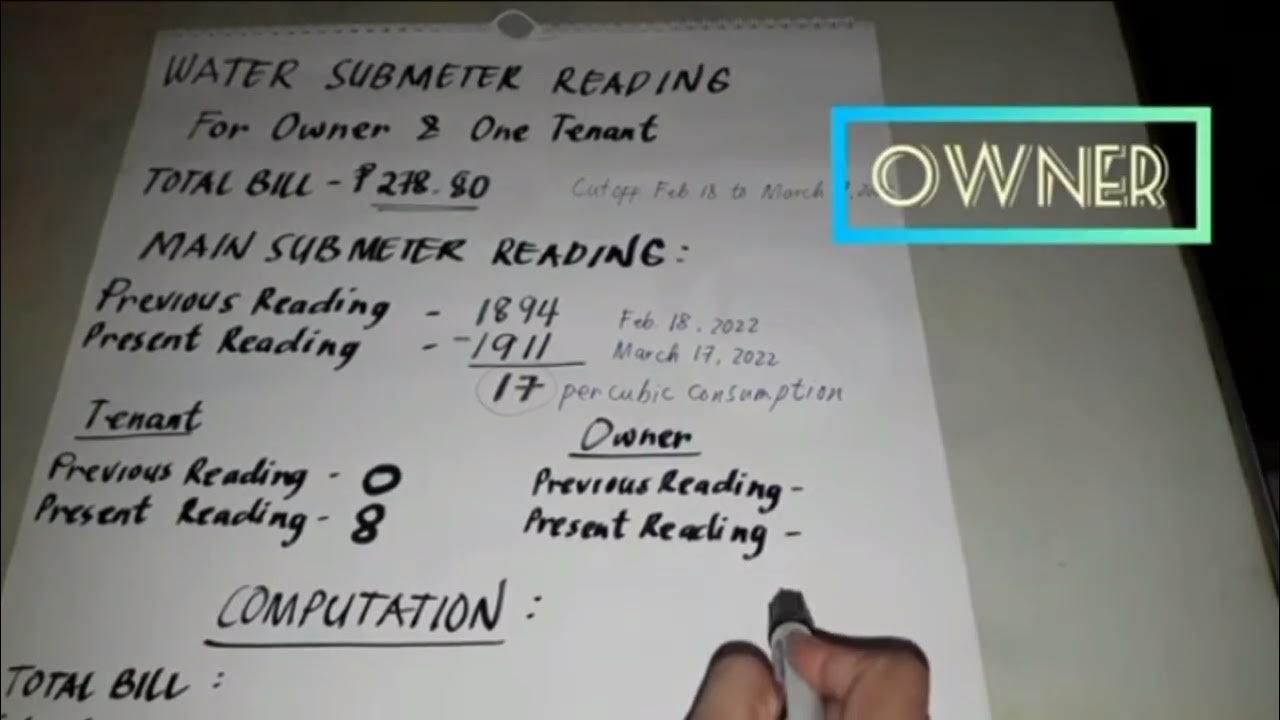 WATER SUBMETER READING
For Owner & One Tenant
TOTAL BILL - ₱278.80
Cutoff Feb 18 to March
OWNER
MAIN SUBMETER READING:
Previous Reading - 1894 Feb. 18, 2022
Present Reading - -1911 March 17, 2022
17 per cubic consumption
Tenant
Previous Reading - 0
Present Reading - 8
Owner
Previous Reading -
Present Reading -
COMPUTATION:
TOTAL BILL: